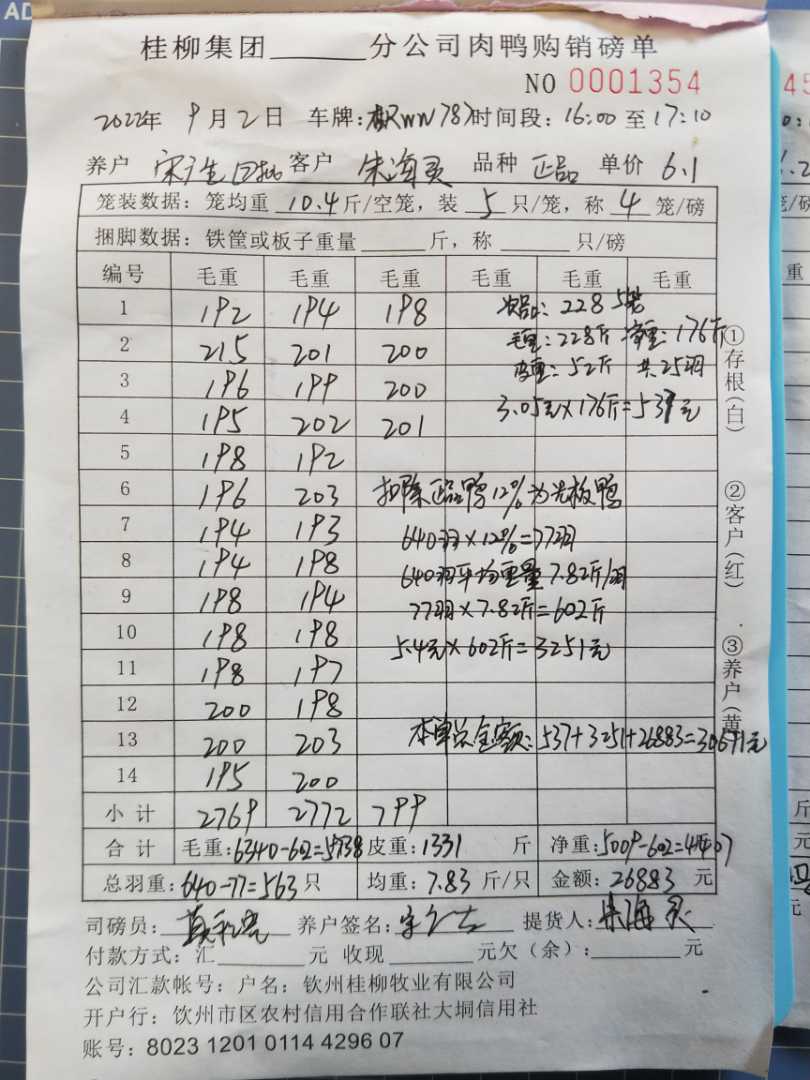 桂柳集团______分公司肉鸭购销磅单
NO 0001354
2022年 9月2日 车牌: WN787 时间段: 16:00 至 17:10
养户 宋 客户 朱海灵 品种 正品 单价 6.1
笼装数据: 笼均重 10.4 斤/空笼, 装 5 只/笼, 称 4 笼/磅
捆脚数据: 铁筐或板子重量______斤, 称______只/磅
编号 毛重 毛重 毛重 毛重 毛重 毛重
1 192 194 198 次品: 228 5笼
2 215 201 200 毛重: 228斤 净重: 176斤
3 196 199 200 皮重: 52斤 共25羽
4 195 202 201 3.05元×176斤=537元
5 198 192
6 196 203 扣除正品鸭12%为光板鸭
7 194 193 640羽×12%=77羽
8 194 198 640羽平均重量7.82斤/羽
9 198 194 77羽×7.82斤=602斤
10 198 198 5.4元×602斤=3251元
11 198 197
12 200 198
13 200 203 本单总金额: 537+3251+26883=30671元
14 195 200
小计 2769 2772 799
合计 毛重: 6340-602=5738 皮重: 1331 斤 净重: 5009-602=4407
总羽重: 640-77=563 只 均重: 7.83 斤/只 金额: 26883 元
司磅员: 养户签名: 提货人: 朱海灵
付款方式: 汇______元 收现______元欠(余):______元
公司汇款帐号: 户名: 钦州桂柳牧业有限公司
开户行: 钦州市区农村信用合作联社大垌信用社
账号: 8023 1201 0114 4296 07
①存根(白)
②客户(红)
③养户(黄